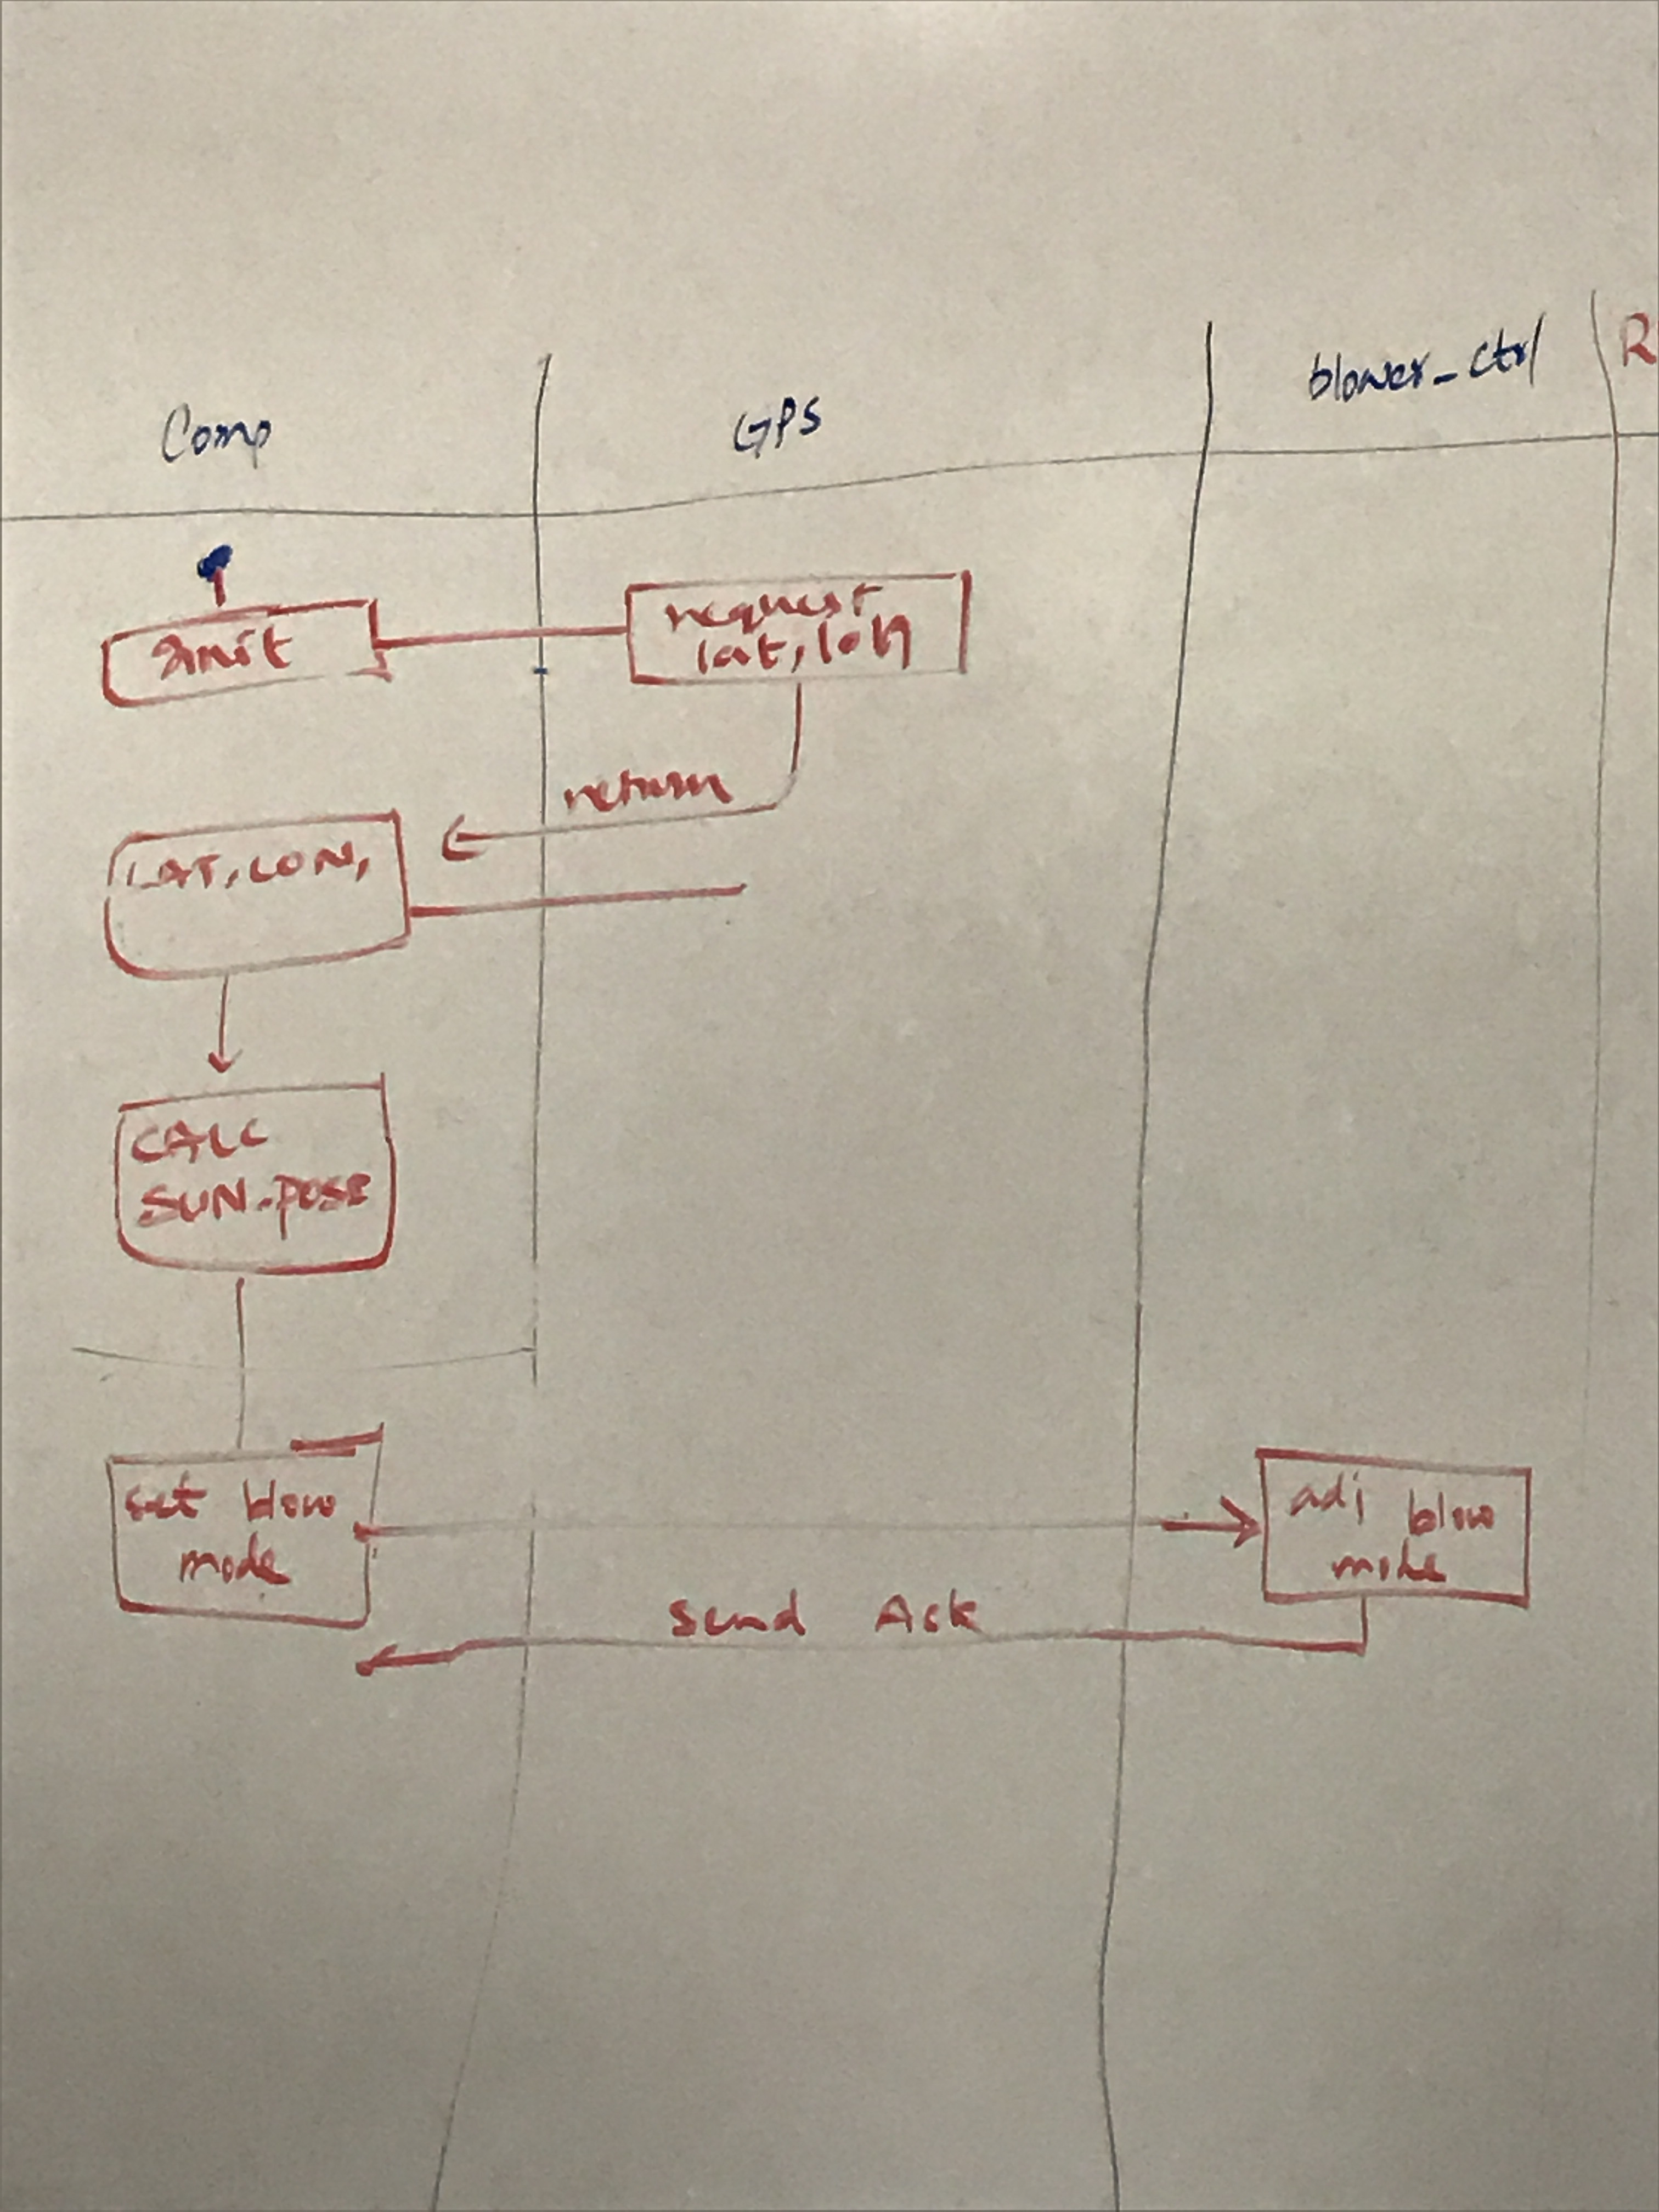 Comp
GPS
blower_ctrl
R
init
request
lat, lon
return
LAT, LON,
CALC
SUN-POSE
set blow
mode
adj blow
mode
Send Ack